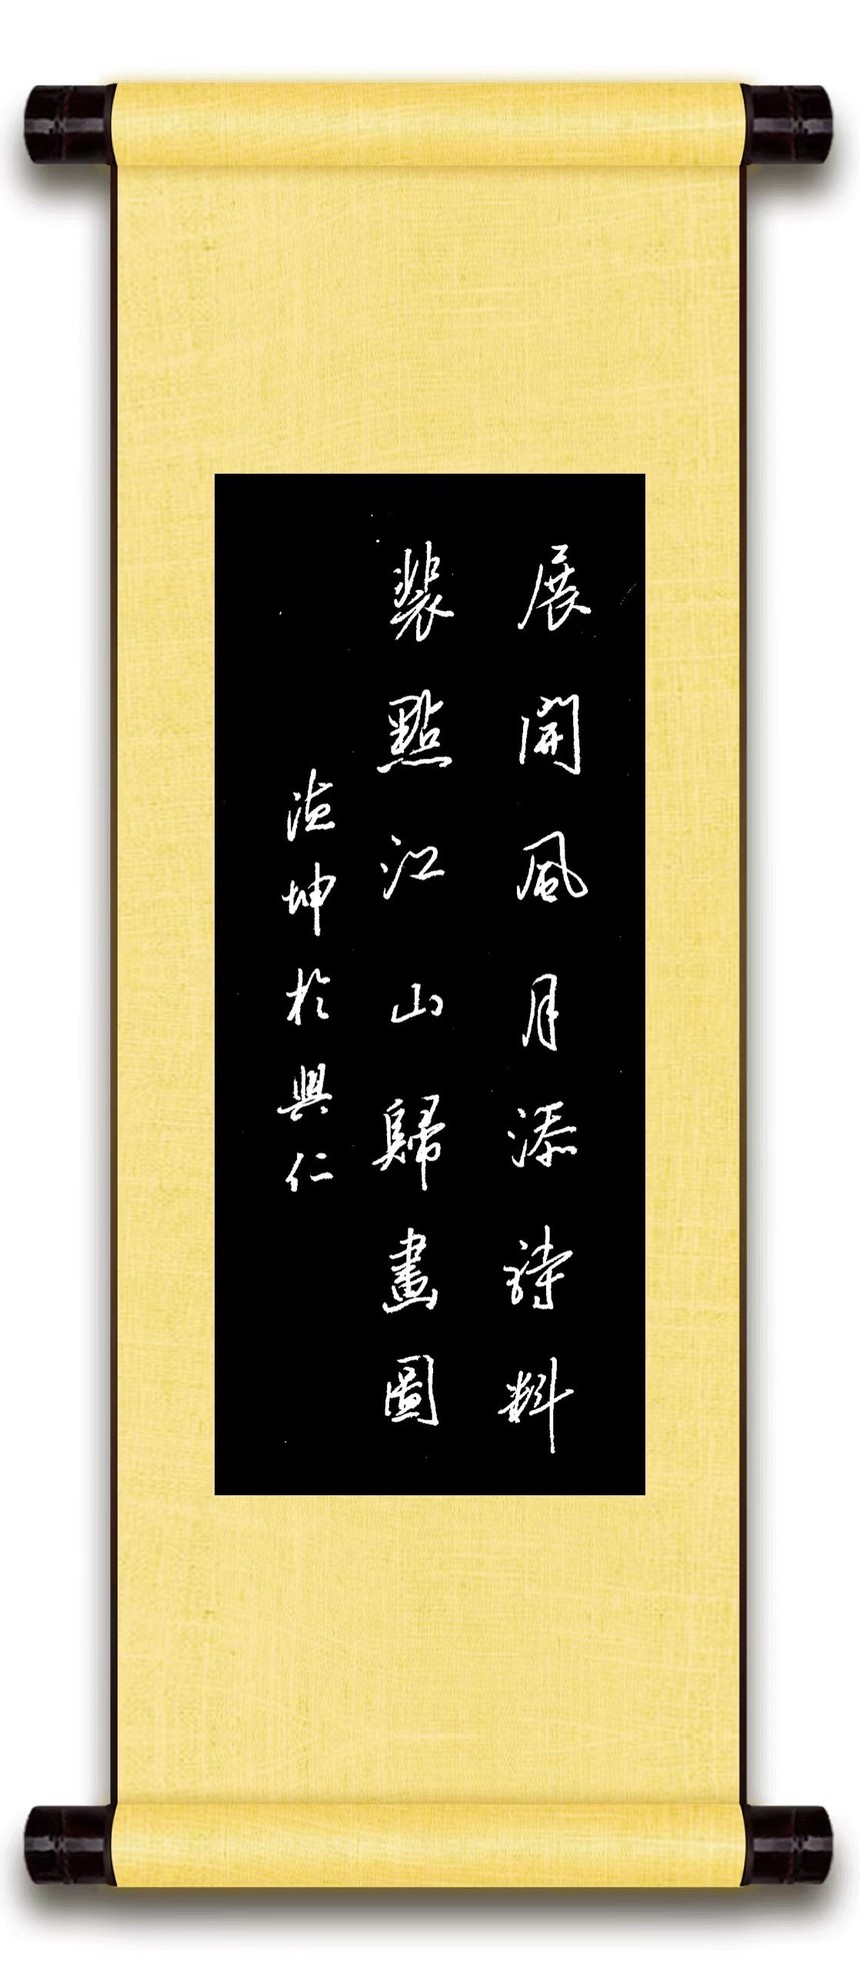 展開風月添詩料
裝點江山歸畫圖
坤於興仁